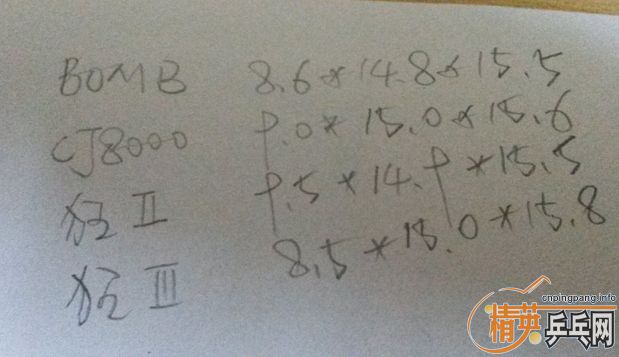 BOMB 8.6*14.8*15.5
CJ8000 9.0*15.0*15.6
狂 II 9.5*14.9*15.5
狂 III 8.5*15.0*15.8
cnpingpang.info
精英乒乓网